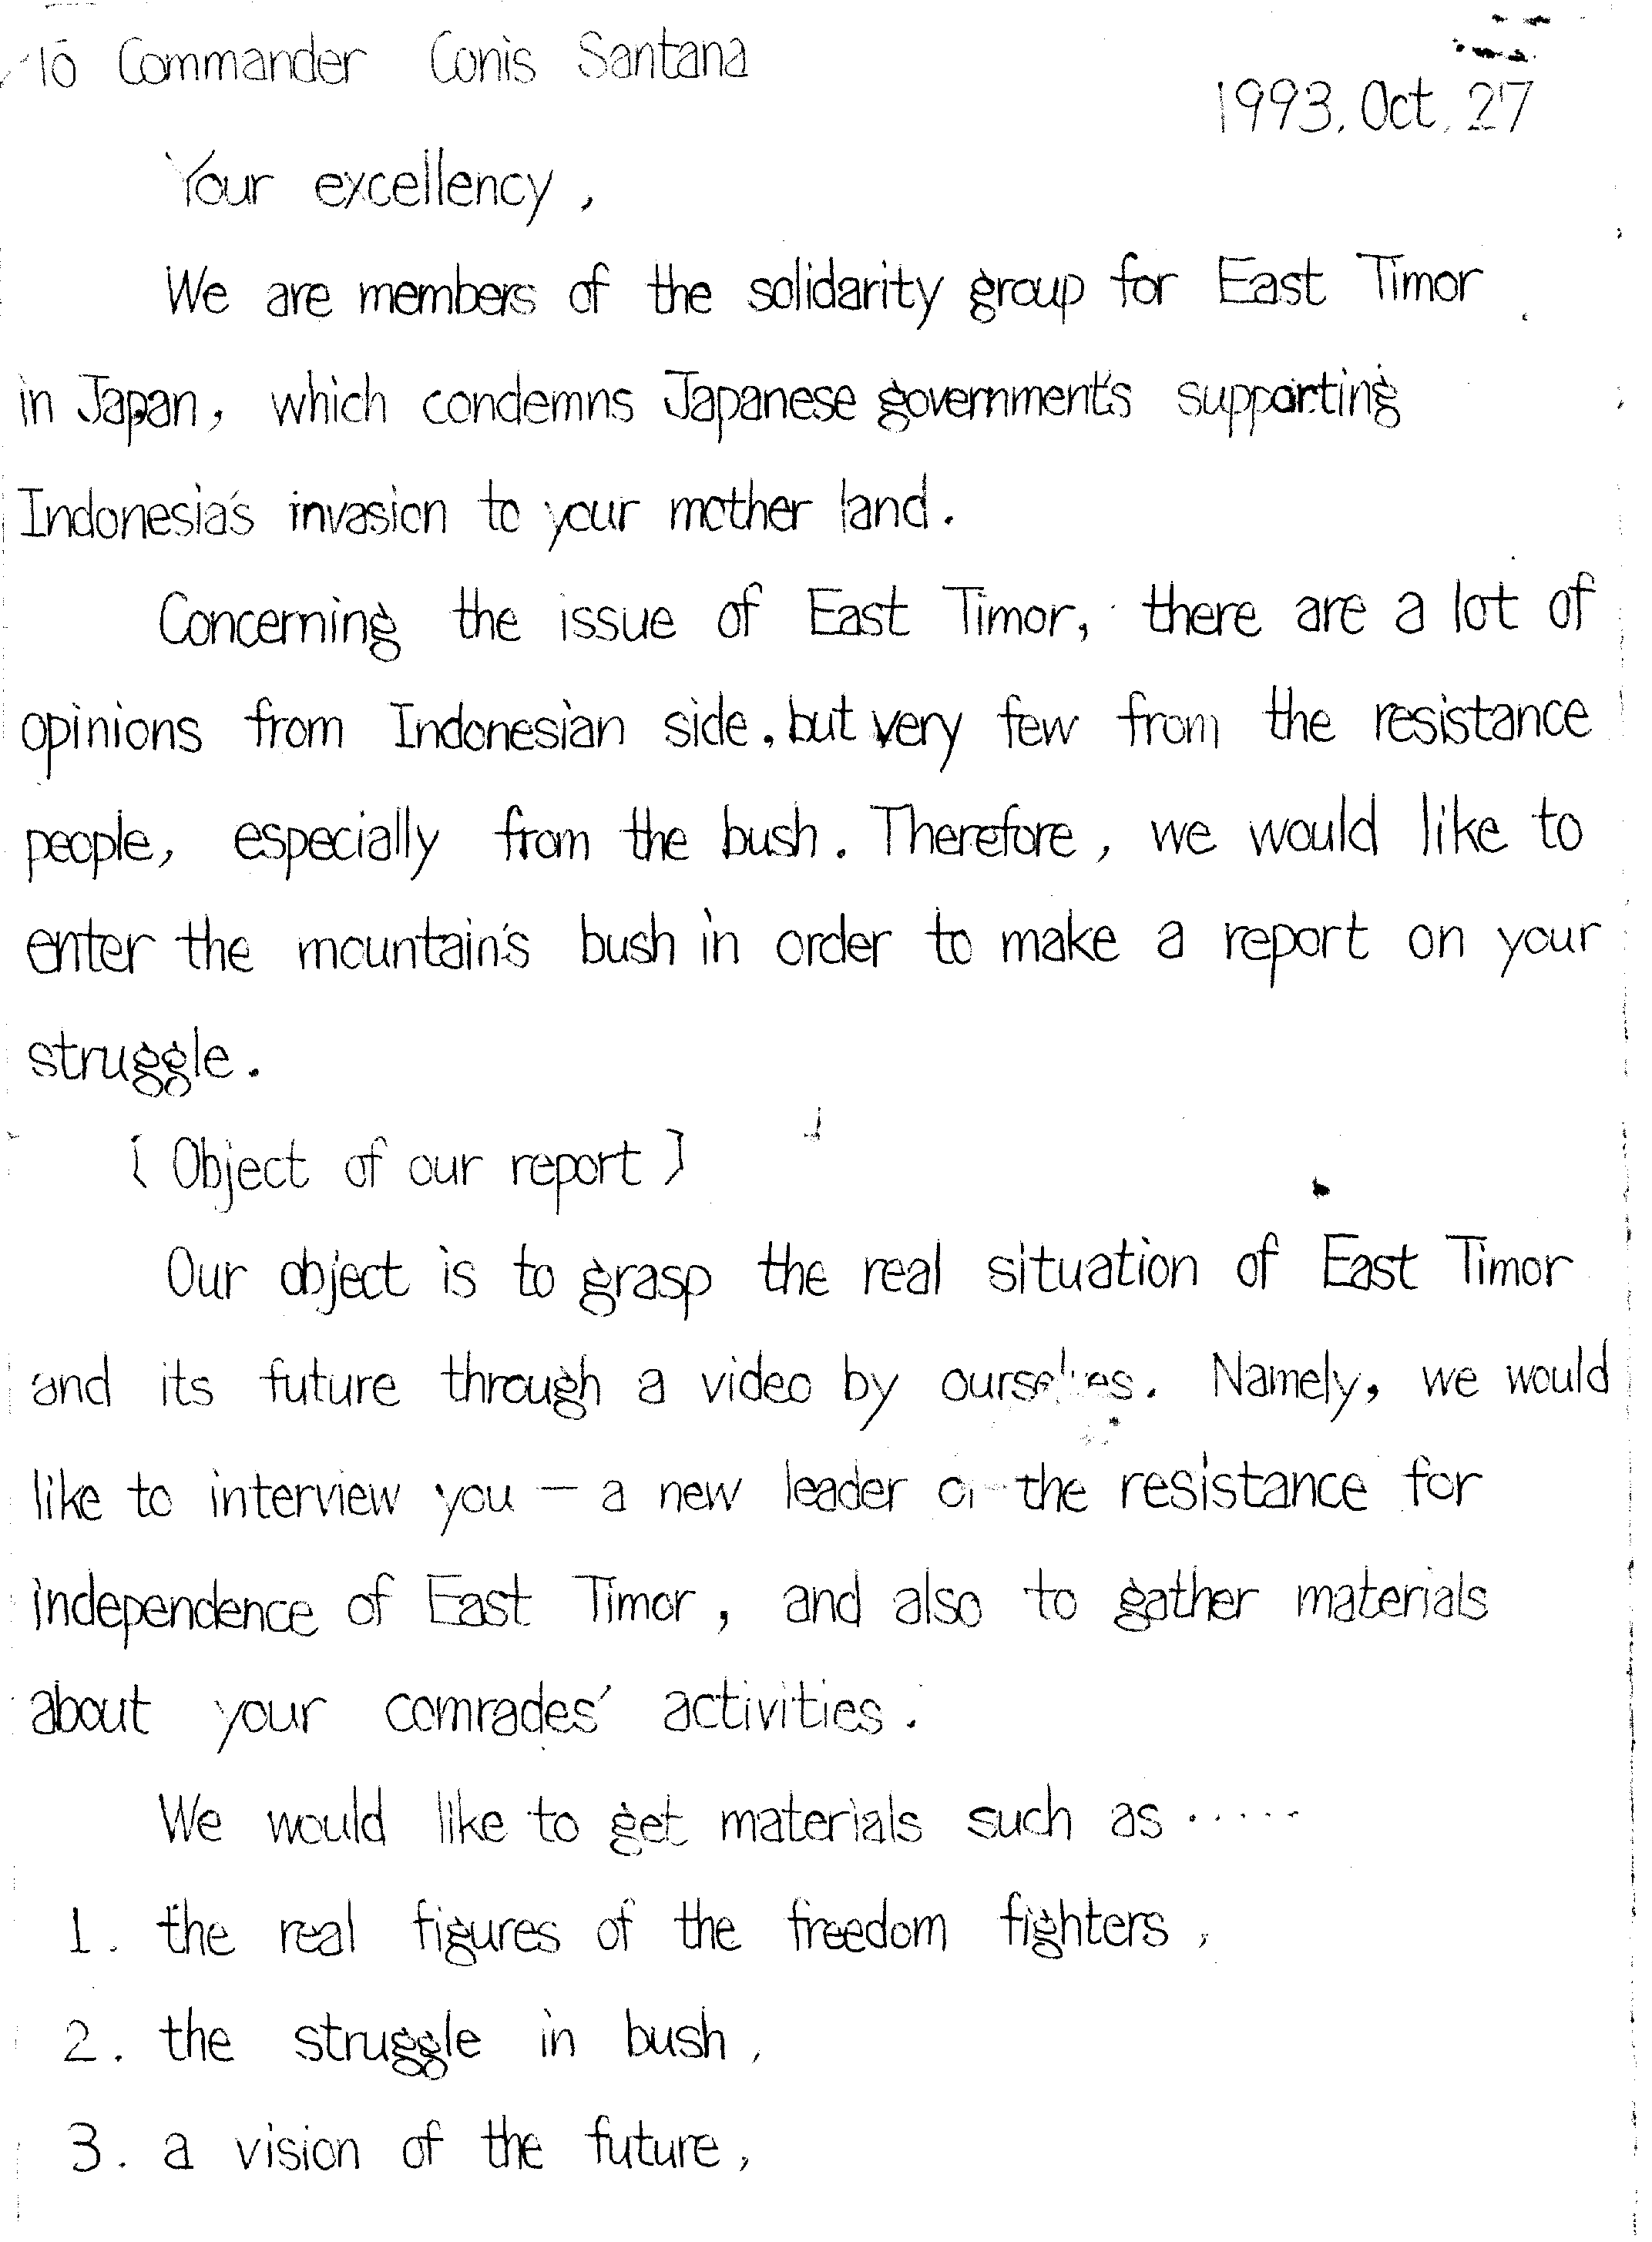 To Commander Conis Santana
1993. Oct. 27
Your excellency,
We are members of the solidarity group for East Timor
in Japan, which condemns Japanese government's supporting
Indonesia's invasion to your mother land.
Concerning the issue of East Timor, there are a lot of
opinions from Indonesian side, but very few from the resistance
people, especially from the bush. Therefore, we would like to
enter the mountain's bush in order to make a report on your
struggle.
[ Object of our report ]
Our object is to grasp the real situation of East Timor
and its future through a video by ourselves. Namely, we would
like to interview you — a new leader of the resistance for
independence of East Timor, and also to gather materials
about your comrades' activities.
We would like to get materials such as .....
1. the real figures of the freedom fighters,
2. the struggle in bush,
3. a vision of the future,